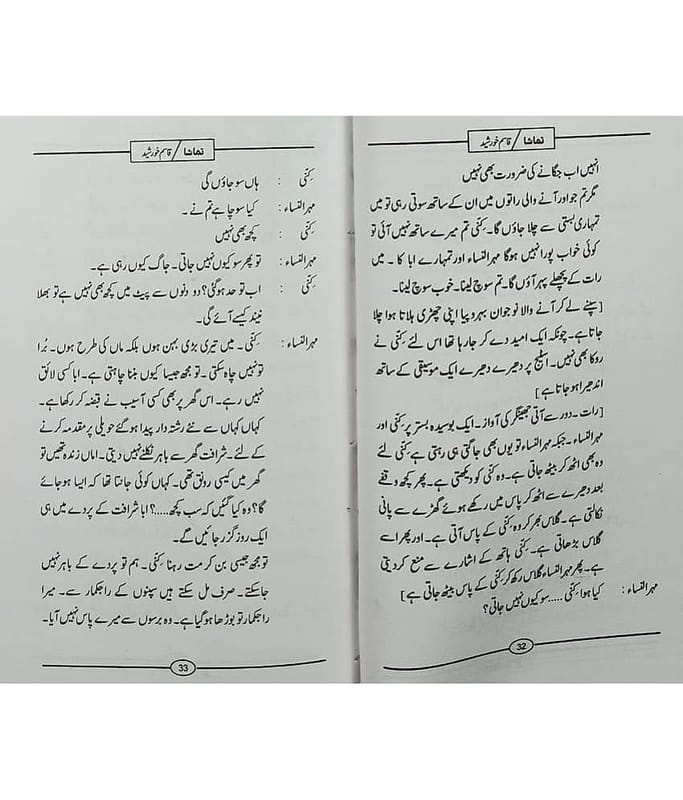 تماشا / قاسم خورشید
انہیں اب جگانے کی ضرورت بھی نہیں
مگر تم جو اور آنے والی راتوں میں ان کے ساتھ سوتی رہی تو میں
تمہاری بستی سے چلا جاؤں گا۔ کِنّی تم میرے ساتھ نہیں آئی تو
کوئی خواب پورا نہیں ہوگا مہرالنساء اور تمہارے ابا کا۔ میں
رات کے پچھلے پہر آؤں گا۔ تم سوچ لینا۔ خوب سوچ لینا۔
[سپنے لے کر آنے والا نوجوان بہروپیا اپنی چھڑی ہلاتا ہوا چلا
جاتا ہے۔ چونکہ ایک امید دے کر جا رہا تھا اس لئے کِنّی نے
روکا بھی نہیں۔ اسٹیج پر دھیرے دھیرے ایک موسیقی کے ساتھ
اندھیرا ہو جاتا ہے]
[رات۔ دور سے آتی جھینگر کی آواز۔ ایک بوسیدہ بستر پر کِنّی اور
مہرالنساء۔ جبکہ مہرالنساء تو یوں بھی جاگتی ہی رہتی ہے کِنّی لئے
وہ بھی اٹھ کر بیٹھ جاتی ہے۔ وہ کِنّی کو دیکھتی ہے۔ پھر کچھ وقفے
بعد دھیرے سے اٹھ کر پاس میں رکھے ہوئے گھڑے سے پانی
نکالتی ہے۔ گلاس بھر کر وہ کِنّی کے پاس آتی ہے۔ اور پھر اسے
گلاس بڑھاتی ہے۔ کِنّی ہاتھ کے اشارے سے منع کر دیتی
ہے۔ پھر مہرالنساء گلاس رکھ کر کِنّی کے پاس بیٹھ جاتی ہے]
مہرالنساء : کیا ہوا کِنّی ..... سو کیوں نہیں جاتی؟
32
تماشا / قاسم خورشید
کِنّی : ہاں سو جاؤں گی
مہرالنساء : کیا سوچا ہے تم نے۔
کِنّی : کچھ بھی نہیں
مہرالنساء : تو پھر سو کیوں نہیں جاتی۔ جاگ کیوں رہی ہے۔
کِنّی : اب تو حد ہو گئی؟ دو دنوں سے پیٹ میں کچھ بھی نہیں ہے تو بھلا
نیند کیسے آئے گی۔
مہرالنساء : کِنّی۔ میں تیری بڑی بہن ہوں بلکہ ماں کی طرح ہوں۔ بُرا
تو نہیں چاہ سکتی۔ تو مجھ جیسا کیوں بننا چاہتی ہے۔ ابا کسی لائق
نہیں رہے۔ اس گھر پر بھی کسی آسیب نے قبضہ کر رکھا ہے۔
کہاں کہاں سے نئے رشتہ دار پیدا ہو گئے حویلی پر مقدمہ کرنے
کے لئے۔ شرافت گھر سے باہر نکلنے نہیں دیتی۔ اماں زندہ تھیں تو
گھر میں کیسی رونق تھی۔ کہاں کوئی جانتا تھا کہ ایسا ہو جائے
گا؟ وہ کیا گئیں کہ سب کچھ.....؟ ابا شرافت کے پردے میں ہی
ایک روز گزر جائیں گے۔
تو مجھ جیسی بن کر مت رہنا کِنّی۔ ہم تو پردے کے باہر نہیں
جا سکتے۔ صرف مل سکتے ہیں سپنوں کے راجکمار سے۔ میرا
راجکمار تو بوڑھا ہو گیا ہے۔ وہ برسوں سے میرے پاس نہیں آیا۔
33